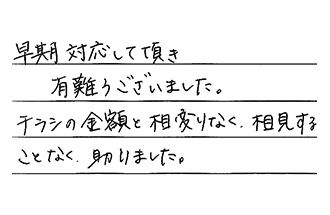 早期対応して頂き
有難うございました。
チラシの金額と相変りなく、相見する
ことなく、助りました。